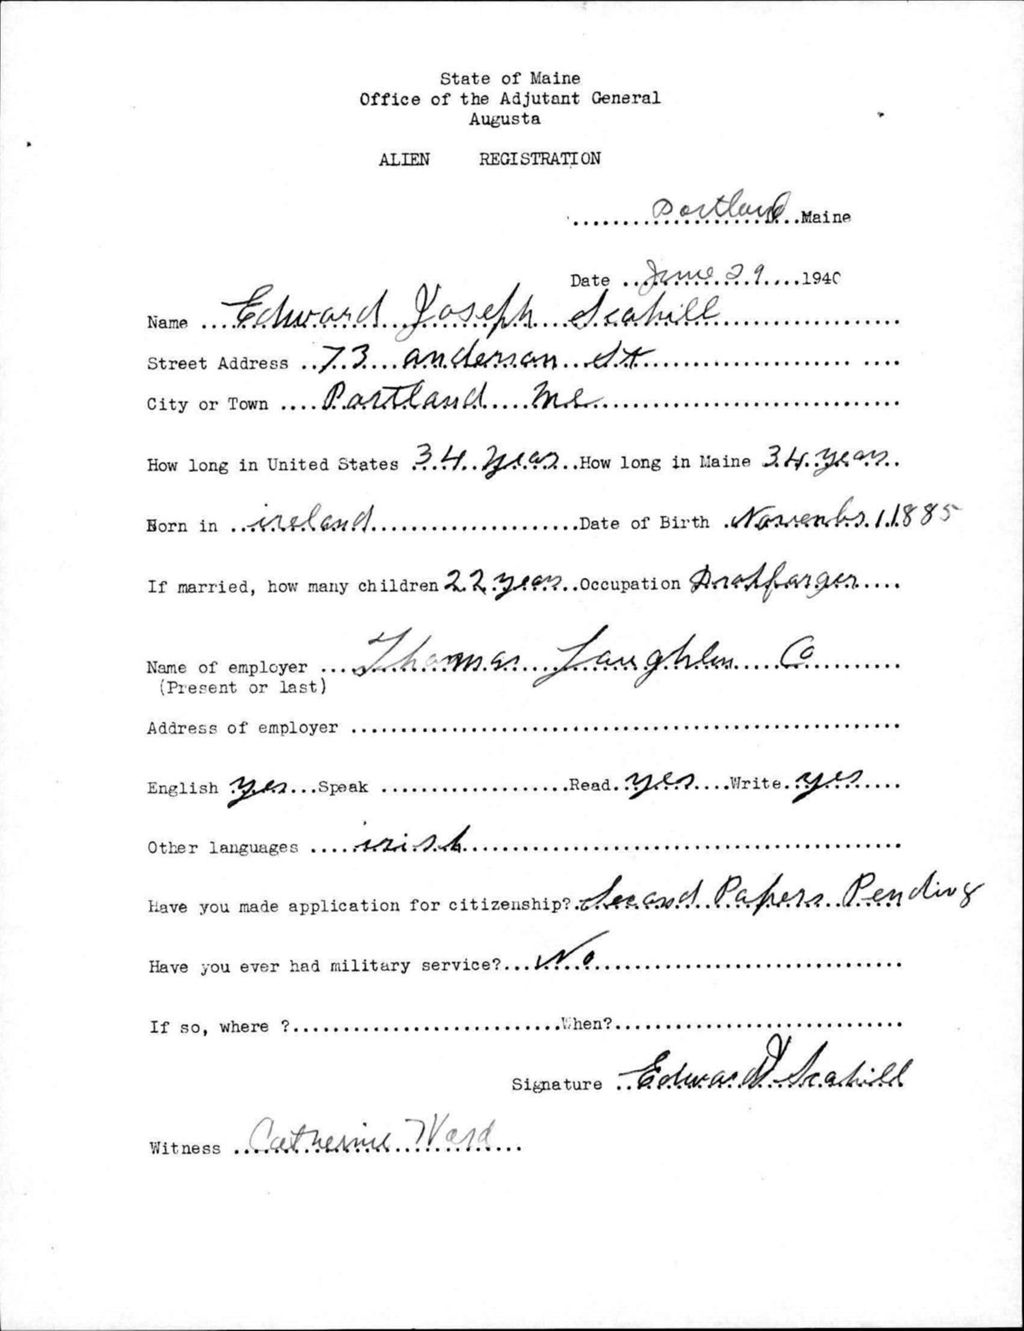 State of Maine
Office of the Adjutant General
Augusta
ALIEN REGISTRATION
Portland Maine
Date June 29 1940
Name Edward Joseph Scahill
Street Address 73 anderson St
City or Town Portland Me
How long in United States 34 years How long in Maine 34 years
Born in ireland Date of Birth 1 1885
If married, how many children 22 years Occupation
Name of employer Thomas Laughlin Co
(Present or last)
Address of employer
English yes Speak Read yes Write yes
Other languages irish
Have you made application for citizenship? Second Papers Pending
Have you ever had military service? No
If so, where ? When?
Signature Edward J Scahill
Witness Catherine Ward